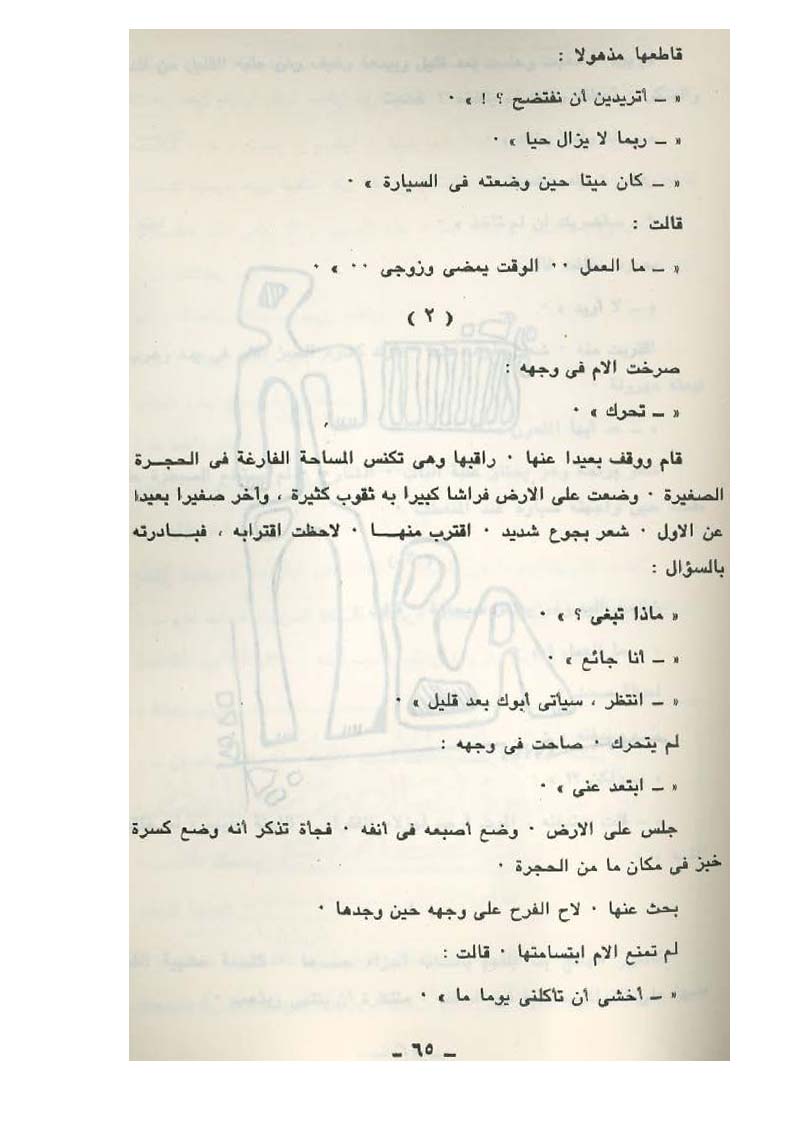 قاطعها مذهولا :
« ـ أتريدين أن نفتضح ؟ ! » ٠
« ـ ربما لا يزال حيا » ٠
« ـ كان ميتا حين وضعته فى السيارة » ٠
قالت :
« ـ ما العمل ٠٠ الوقت يمضى وزوجى ٠٠ » ٠
( ٢ )
صرخت الام فى وجهه :
« ـ تحرك » ٠
قام ووقف بعيدا عنها ٠ راقبها وهى تكنس المساحة الفارغة فى الحجـرة
الصغيرة ٠ وضعت على الارض فراشا كبيرا به ثقوب كثيرة ، وآخر صغيرا بعيدا
عن الاول ٠ شعر بجوع شديد ٠ اقترب منهـــا ٠ لاحظت اقترابه ، فبـــادرته
بالسؤال :
« ماذا تبغى ؟ » ٠
« ـ أنا جائع » ٠
« ـ انتظر ، سيأتى أبوك بعد قليل » ٠
لم يتحرك ٠ صاحت فى وجهه :
« ـ ابتعد عنى » ٠
جلس على الارض ٠ وضع أصبعه فى أنفه ٠ فجأة تذكر أنه وضع كسرة
خبز فى مكان ما من الحجرة ٠
بحث عنها ٠ لاح الفرح على وجهه حين وجدها ٠
لم تمنع الام ابتسامتها ٠ قالت :
« ـ أخشى أن تأكلنى يوما ما » ٠
ـ ٦٥ ـ